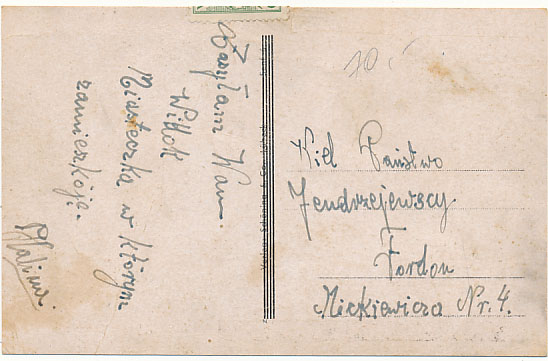 Zasyłam Wam
Widok
Miasteczka w którym
zamieszkóję.
Halina.
10
Wiel Państwo
Jendrzejewscy
Fordon
Mickiewicza Nr. 4.